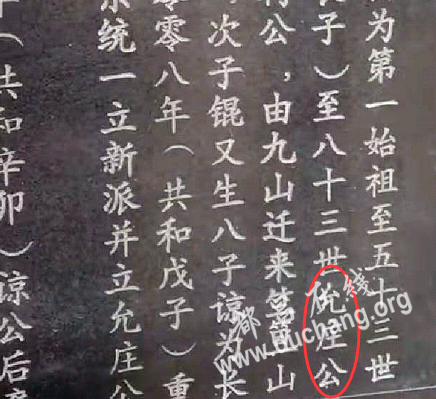 为第一始祖至五十三世
子）至八十三世公
公，由九山迁来山
次子锟又生八子谅为长
零八年（共和戊子）重
统一立新派并立允庄公
（共和辛卯）谅公后
都 线
www.duchang.org